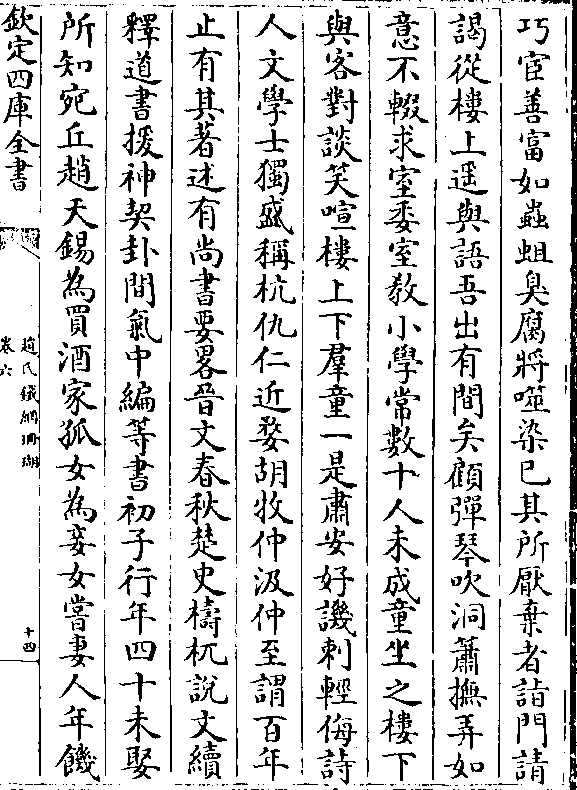 巧宦善富如蟲蛆臭腐將噬染已其所厭棄者詣門請
謁從樓上遥與語吾出有間矣顧彈琴吹洞簫撫弄如
意不輟求室委室教小學常數十人未成童坐之樓下
與客對談笑喧樓上下羣童一是肅安好譏刺輕侮詩
人文學士獨盛稱杭仇仁近婺胡牧仲汲仲至謂百年
止有其著述有尚書要畧晉文春秋楚史檮杌說文續
釋道書援神契卦間氣中編等書初子行年四十未娶
所知宛丘趙天錫為買酒家孤女為妾女嘗妻人年饑
欽定四庫全書
趙氏鐵網珊瑚
卷六
十四